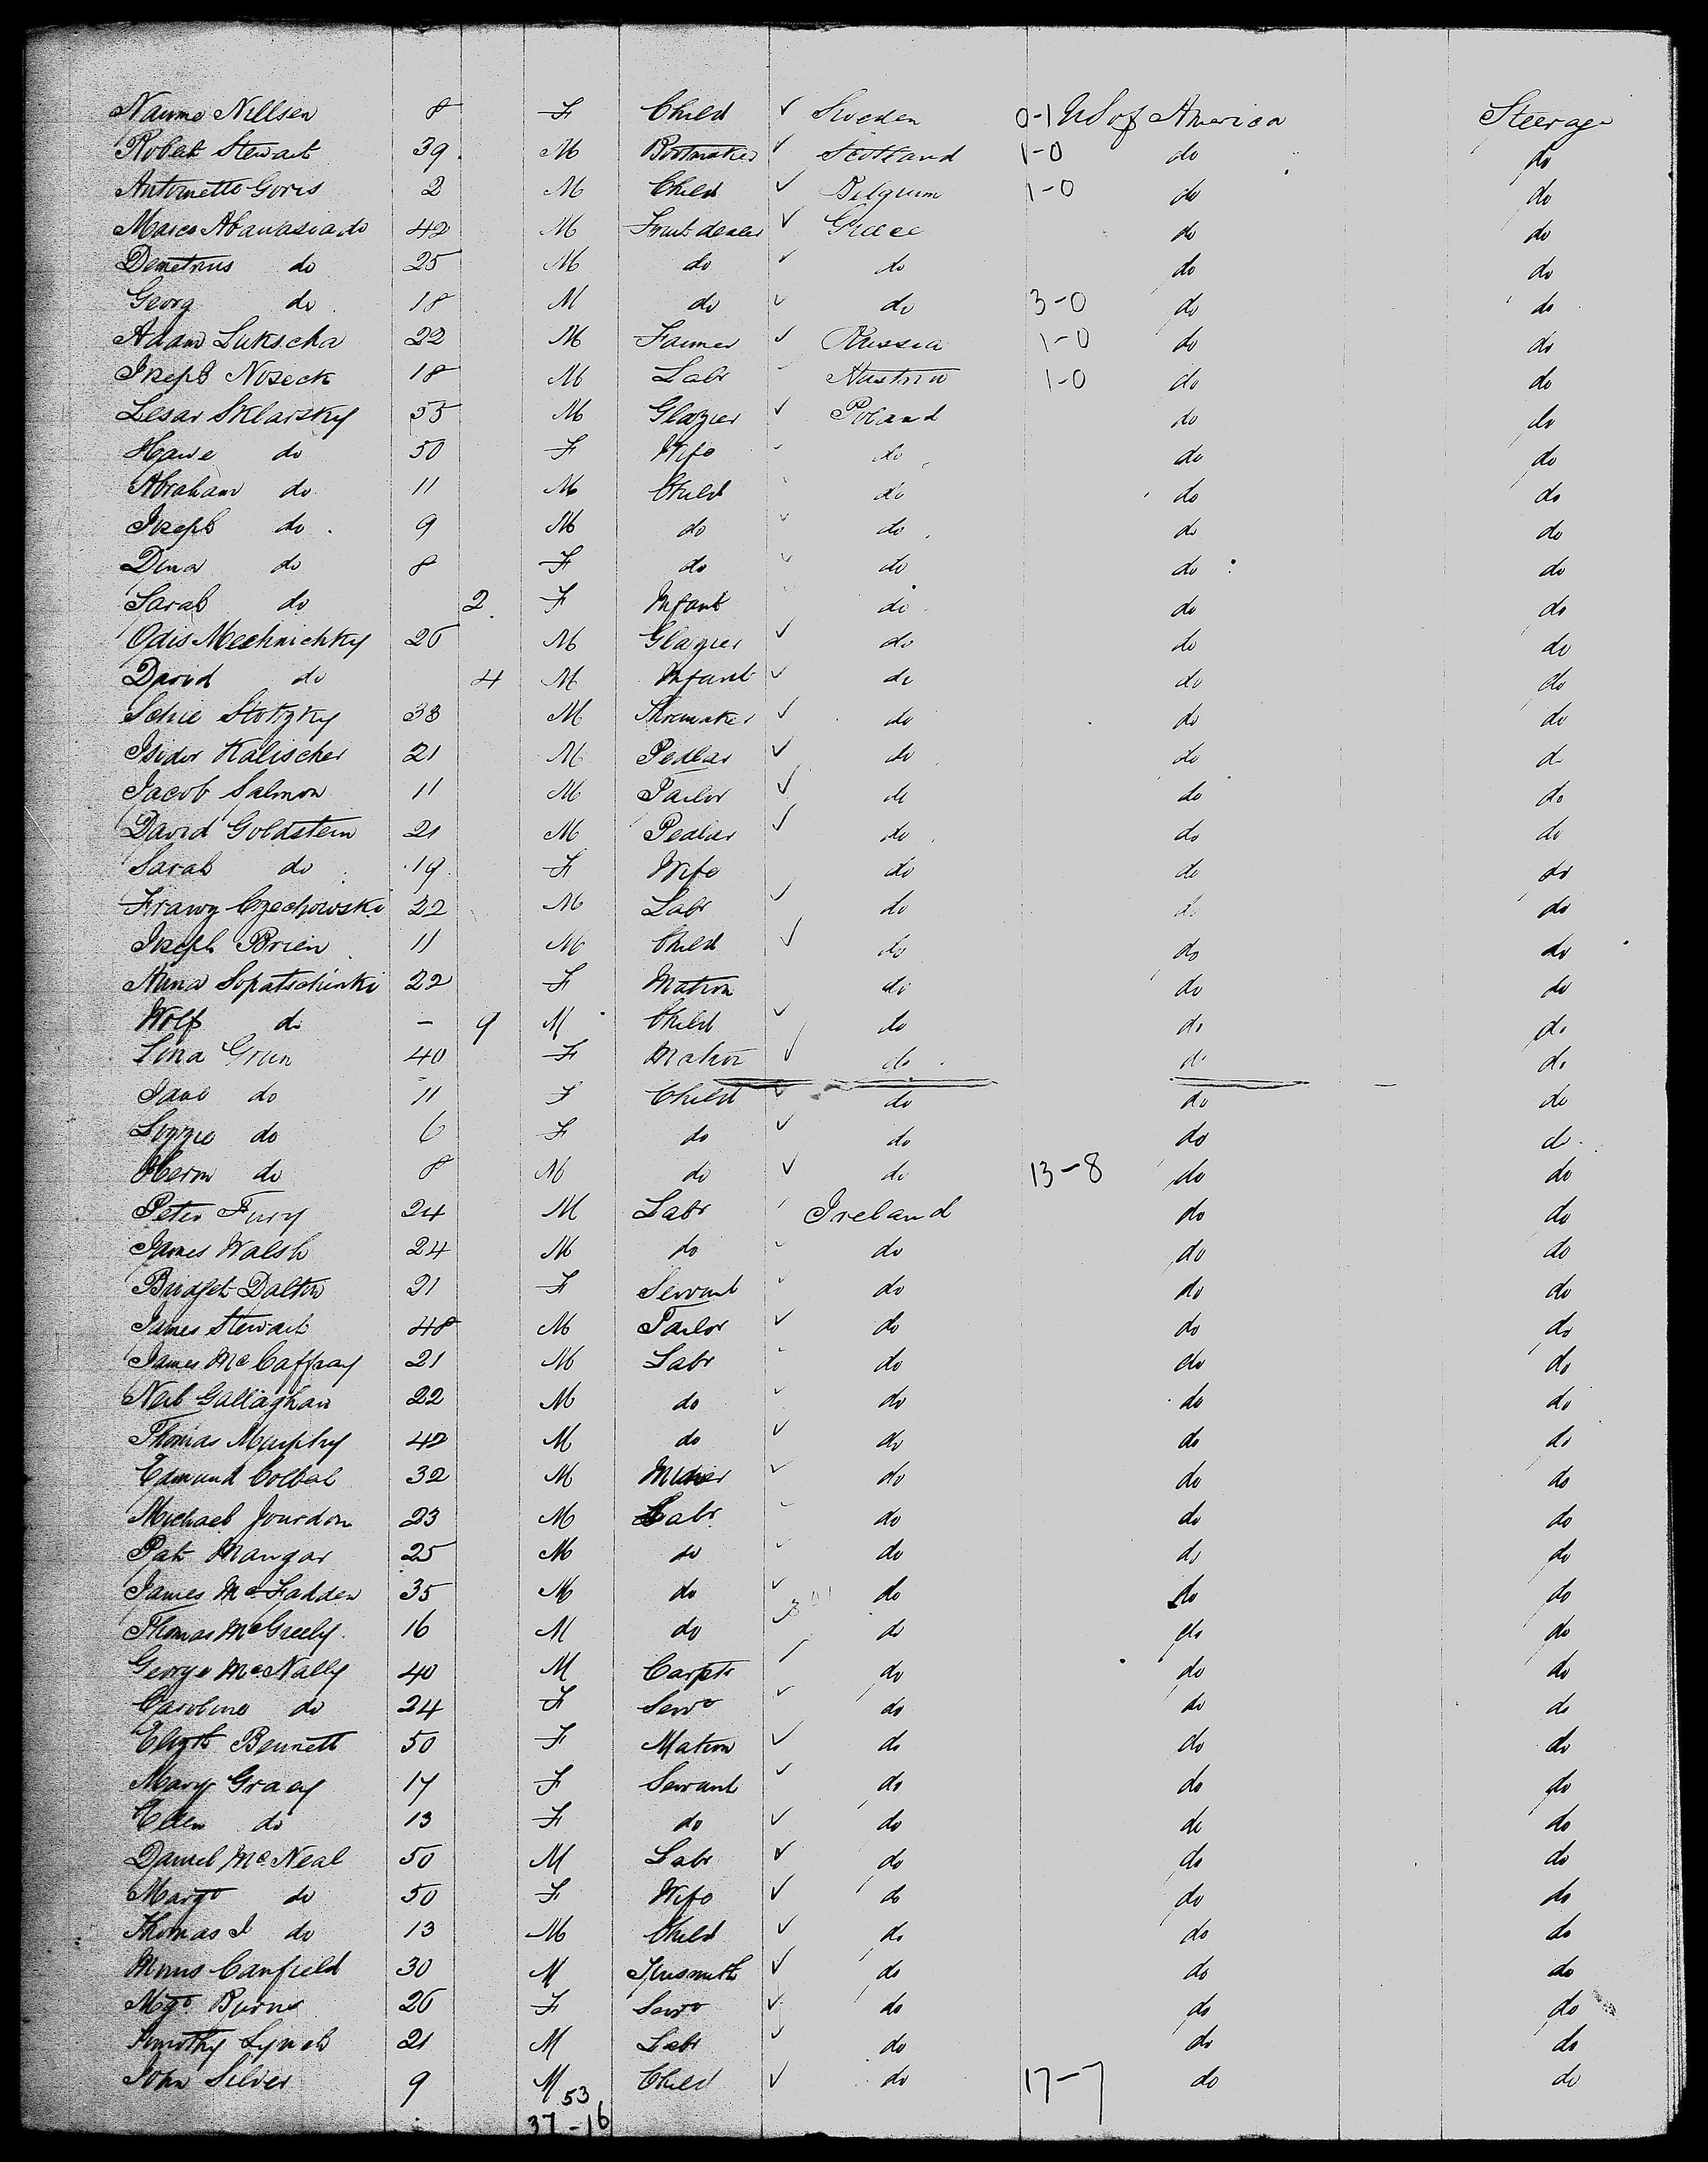 Naime Nillsen 8 F Child ✓ Sweden 0-1 US of America Steerage
Robert Stewart 39 M Bootmaker ✓ Scotland 1-0 do do
Antoinette Goris 2 M Child ✓ Belgium 1-0 do do
Marco Abanasiado 42 M Fruit dealer ✓ Greece do do
Demetrius do 25 M do ✓ do do do
Georg do 18 M do ✓ do 3-0 do do
Adam Lukscha 22 M Farmer ✓ Russia 1-0 do do
Joseph Noseck 18 M Labr Austria 1-0 do do
Lesar Sklarsky 55 M Glazier ✓ Poland do do
Hawe do 50 F Wife do do do
Abraham do 11 M Child do do do
Joseph do 9 M do ✓ do do do
Dena do 8 F do ✓ do do do
Sarah do 2 F Infant do do do
Odis Mechnichky 26 M Glazier ✓ do do do
David do 4 M Infant ✓ do do do
Schie Stotzky 38 M Shoemaker ✓ do do do
Isidor Kalischer 21 M Pedlar ✓ do do do
Jacob Salmon 11 M Tailor ✓ do do do
David Goldstein 21 M Pedlar ✓ do do do
Sarah do 19 F Wife do do do
Franz Czechowski 22 M Labr ✓ do do do
Joseph Brien 11 M Child ✓ do do do
Anna Sopatschinki 22 F Matron do do do
Wolf do - 9 M Child ✓ do do do
Lina Grun 40 F Matron ✓ do do do
Jane do 11 F Child ✓ do do do
Lizzie do 6 F do ✓ do do do
Herm do 8 M do ✓ do 13-8 do do
Peter Fury 24 M Labr Ireland do do
James Walsh 24 M do ✓ do do do
Bridget Dalton 21 F Servant ✓ do do do
James Stewart 48 M Tailor ✓ do do do
James McCaffray 21 M Labr do do do
Neil Gallaghan 22 M do ✓ do do do
Thomas Murphy 42 M do ✓ do do do
Edmund Colbal 32 M Miner ✓ do do do
Michael Jourdon 23 M Labr do do do
Pat Mangar 25 M do do do do
James McFadden 35 M do ✓ do do do
Thomas McGreely 16 M do ✓ do do do
George McNally 40 M Carptr ✓ do do do
Caroline do 24 F Servt ✓ do do do
Elizth Bennett 50 F Matron ✓ do do do
Mary Gracy 17 F Servant ✓ do do do
Ellen do 13 F do ✓ do do do
Daniel McNeal 50 M Labr ✓ do do do
Margt do 50 F Wife ✓ do do do
Thomas J do 13 M Child ✓ do do do
Canfield 30 M Tinsmith ✓ do do do
Mgt Burns 26 F Servt ✓ do do do
Timothy Lynch 21 M Labr ✓ do do do
John Silver 9 M Child ✓ do 17-7 do do
53
37-16